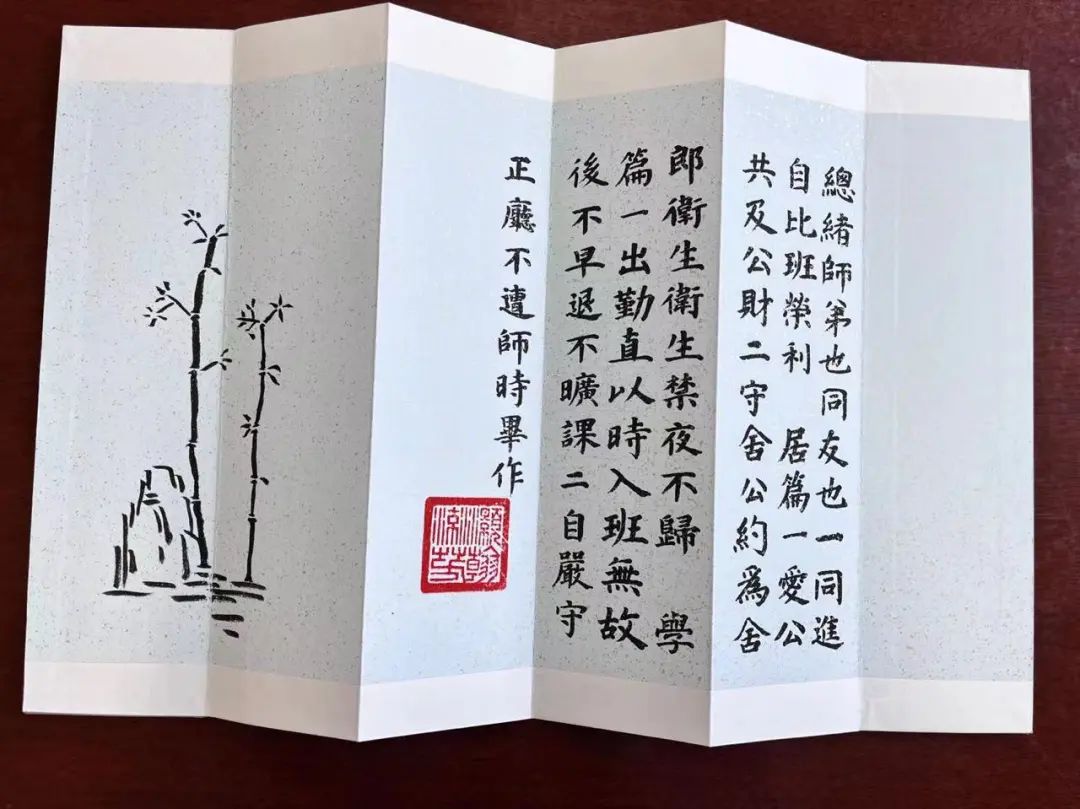 總緒師弟也同友也一一同進
自比班榮利 居篇一愛公
共及公財二守舍公約爲舍
郎衛生衛生禁夜不歸 學
篇一出勤直以時入班無故
後不早退不曠課二自嚴守
正廳不遭師時畢作